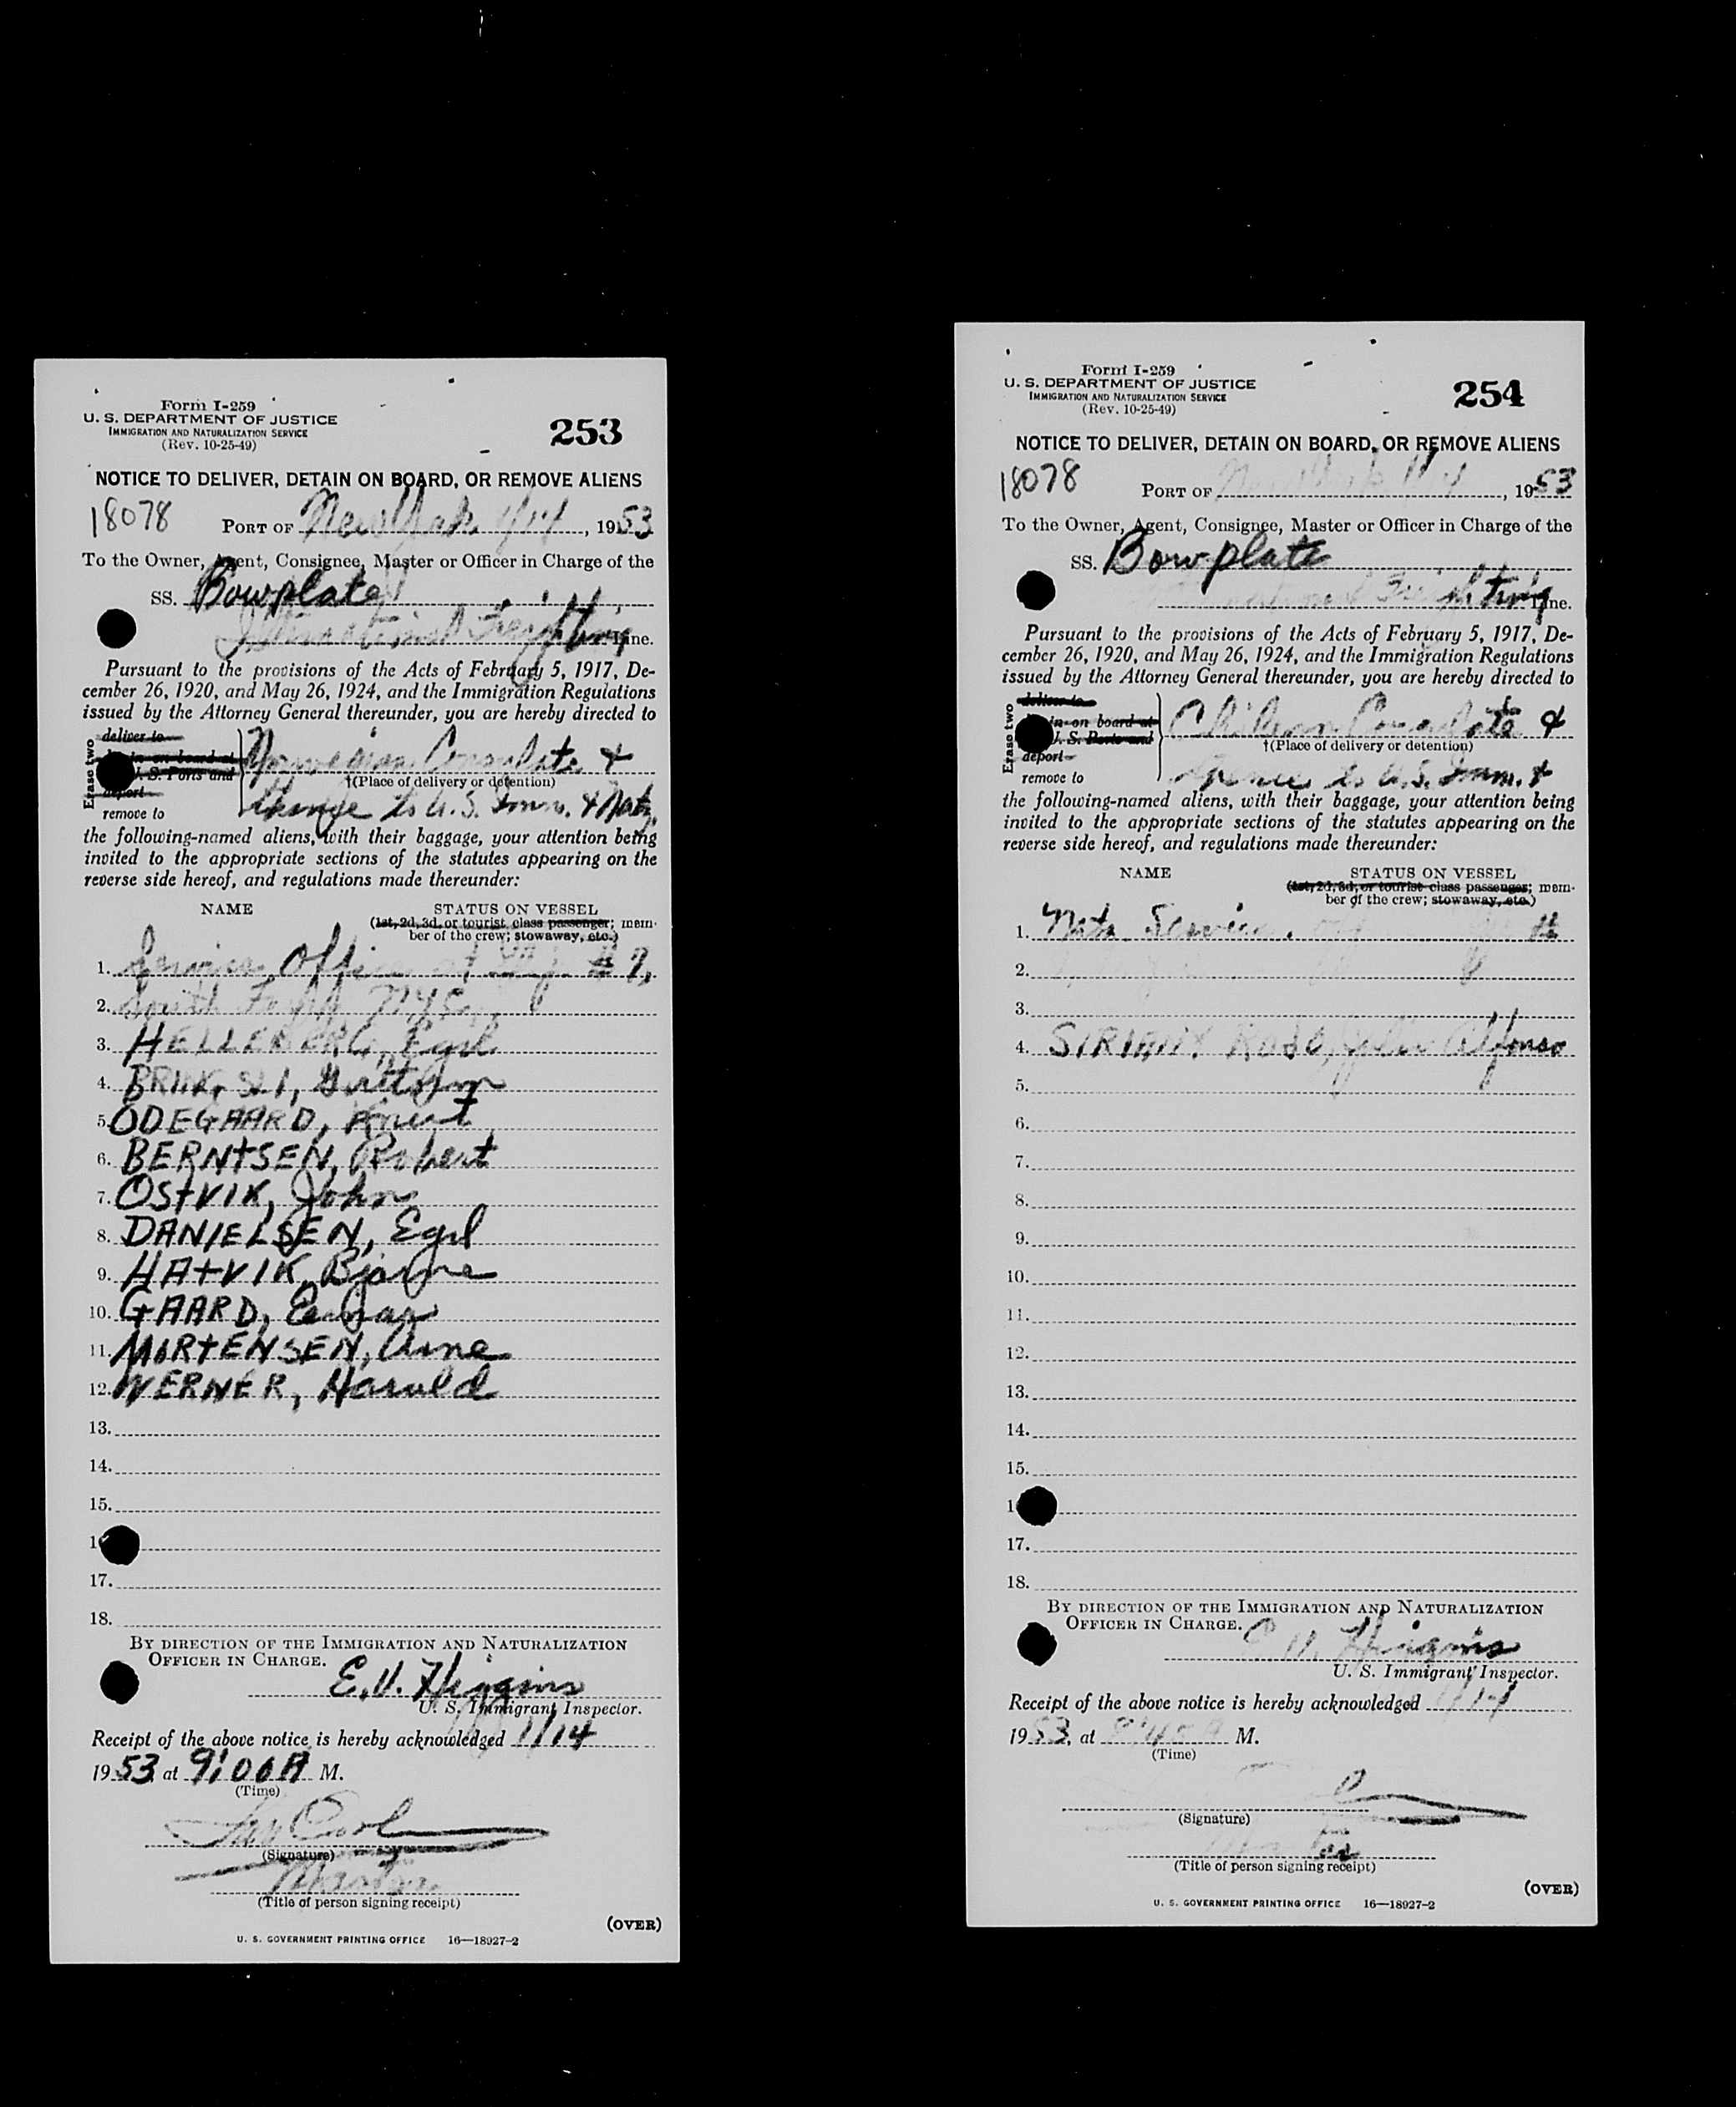 Form I-259
U. S. DEPARTMENT OF JUSTICE
IMMIGRATION AND NATURALIZATION SERVICE
(Rev. 10-25-49)
253
NOTICE TO DELIVER, DETAIN ON BOARD, OR REMOVE ALIENS
18078
PORT OF New York 1/14, 1953
To the Owner, Agent, Consignee, Master or Officer in Charge of the
SS. Bowplate
International Freighting Line.
Pursuant to the provisions of the Acts of February 5, 1917, De-
cember 26, 1920, and May 26, 1924, and the Immigration Regulations
issued by the Attorney General thereunder, you are hereby directed to
Erase two
deliver to
in on board at
U. S. Ports and
deport
remove to
Norwegian Consulate &
†(Place of delivery or detention)
thence to U.S. Imm. & Natz.
the following-named aliens, with their baggage, your attention being
invited to the appropriate sections of the statutes appearing on the
reverse side hereof, and regulations made thereunder:
NAME STATUS ON VESSEL
(1st, 2d, 3d, or tourist class passenger; mem-
ber of the crew; stowaway, etc.)
1. Service Office at #9,
2. South NYC
3. HELLEBERG, Egil
4.
5. ODEGAARD, Knut
6. BERNTSEN, Robert
7. OSTVIK, John
8. DANIELSEN, Egil
9. HATVIK, Bjarne
10. GAARD,
11. MORTENSEN, Arne
12. WERNER, Harald
13.
14.
15.
1
17.
18.
BY DIRECTION OF THE IMMIGRATION AND NATURALIZATION
OFFICER IN CHARGE.
E.V. Higgins
U. S. Immigrant Inspector.
Receipt of the above notice is hereby acknowledged 1/14
1953 at 9:00 A M.
(Time)
(Signature)
Master
(Title of person signing receipt)
(OVER)
U. S. GOVERNMENT PRINTING OFFICE 16—18927-2
Form I-259
U. S. DEPARTMENT OF JUSTICE
IMMIGRATION AND NATURALIZATION SERVICE
(Rev. 10-25-49)
254
NOTICE TO DELIVER, DETAIN ON BOARD, OR REMOVE ALIENS
18078
PORT OF New York 1/14, 1953
To the Owner, Agent, Consignee, Master or Officer in Charge of the
SS. Bowplate
International Freighting Line.
Pursuant to the provisions of the Acts of February 5, 1917, De-
cember 26, 1920, and May 26, 1924, and the Immigration Regulations
issued by the Attorney General thereunder, you are hereby directed to
Erase two
deliver to
in on board at
U. S. Ports and
deport
remove to
Chilean Consulate &
†(Place of delivery or detention)
thence to U.S. Imm. &
the following-named aliens, with their baggage, your attention being
invited to the appropriate sections of the statutes appearing on the
reverse side hereof, and regulations made thereunder:
NAME STATUS ON VESSEL
(1st, 2d, 3d, or tourist class passenger; mem-
ber of the crew; stowaway, etc.)
1. Natz. Service.
2.
3.
4. Alfonso
5.
6.
7.
8.
9.
10.
11.
12.
13.
14.
15.
1
17.
18.
BY DIRECTION OF THE IMMIGRATION AND NATURALIZATION
OFFICER IN CHARGE.
E.V. Higgins
U. S. Immigrant Inspector.
Receipt of the above notice is hereby acknowledged 1/14
1953, at M.
(Time)
(Signature)
Master
(Title of person signing receipt)
(OVER)
U. S. GOVERNMENT PRINTING OFFICE 16—18927-2